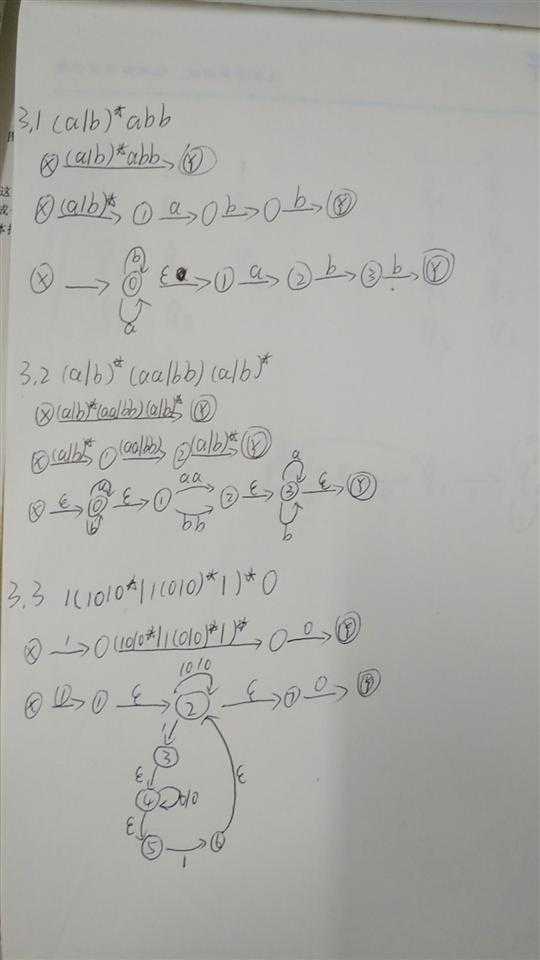 3.1 (a|b)*abb
X (a|b)*abb Y
X (a|b)* 1 a b b Y
b
X 0 ε 1 a 2 b 3 b Y
a
3.2 (a|b)*(aa|bb)(a|b)*
X (a|b)*(aa|bb)(a|b)* Y
X (a|b)* 1 (aa|bb) 2 (a|b)* Y
a aa a
X ε 0 ε 1 2 ε 3 ε Y
b bb b
3.3 1(1010*|1(010)*1)*0
X 1 (1010*|1(010)*1)* 0 Y
1010
X 1 1 ε 2 ε 7 0 Y
1
3
ε ε
4 010
ε
5 6
1